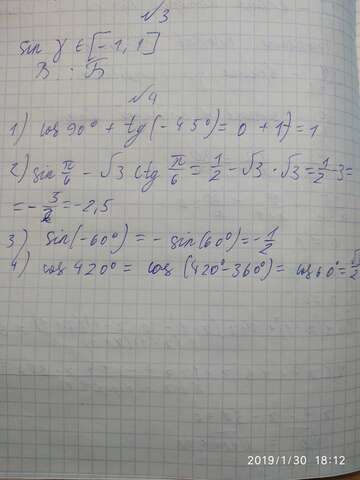 √3
sin γ ∈ [-1, 1]
В : Б
√4
1) cos 90° + tg (-45°) = 0 + 1) = 1
2) sin π/6 - √3 ctg π/6 = 1/2 - √3 · √3 = 1/2 - 3 =
= - 3/2 = -2,5
3) sin(-60°) = - sin(60°) = - 1/2
4) cos 420° = cos (420° - 360°) = cos 60° =
2019/1/30 18:12